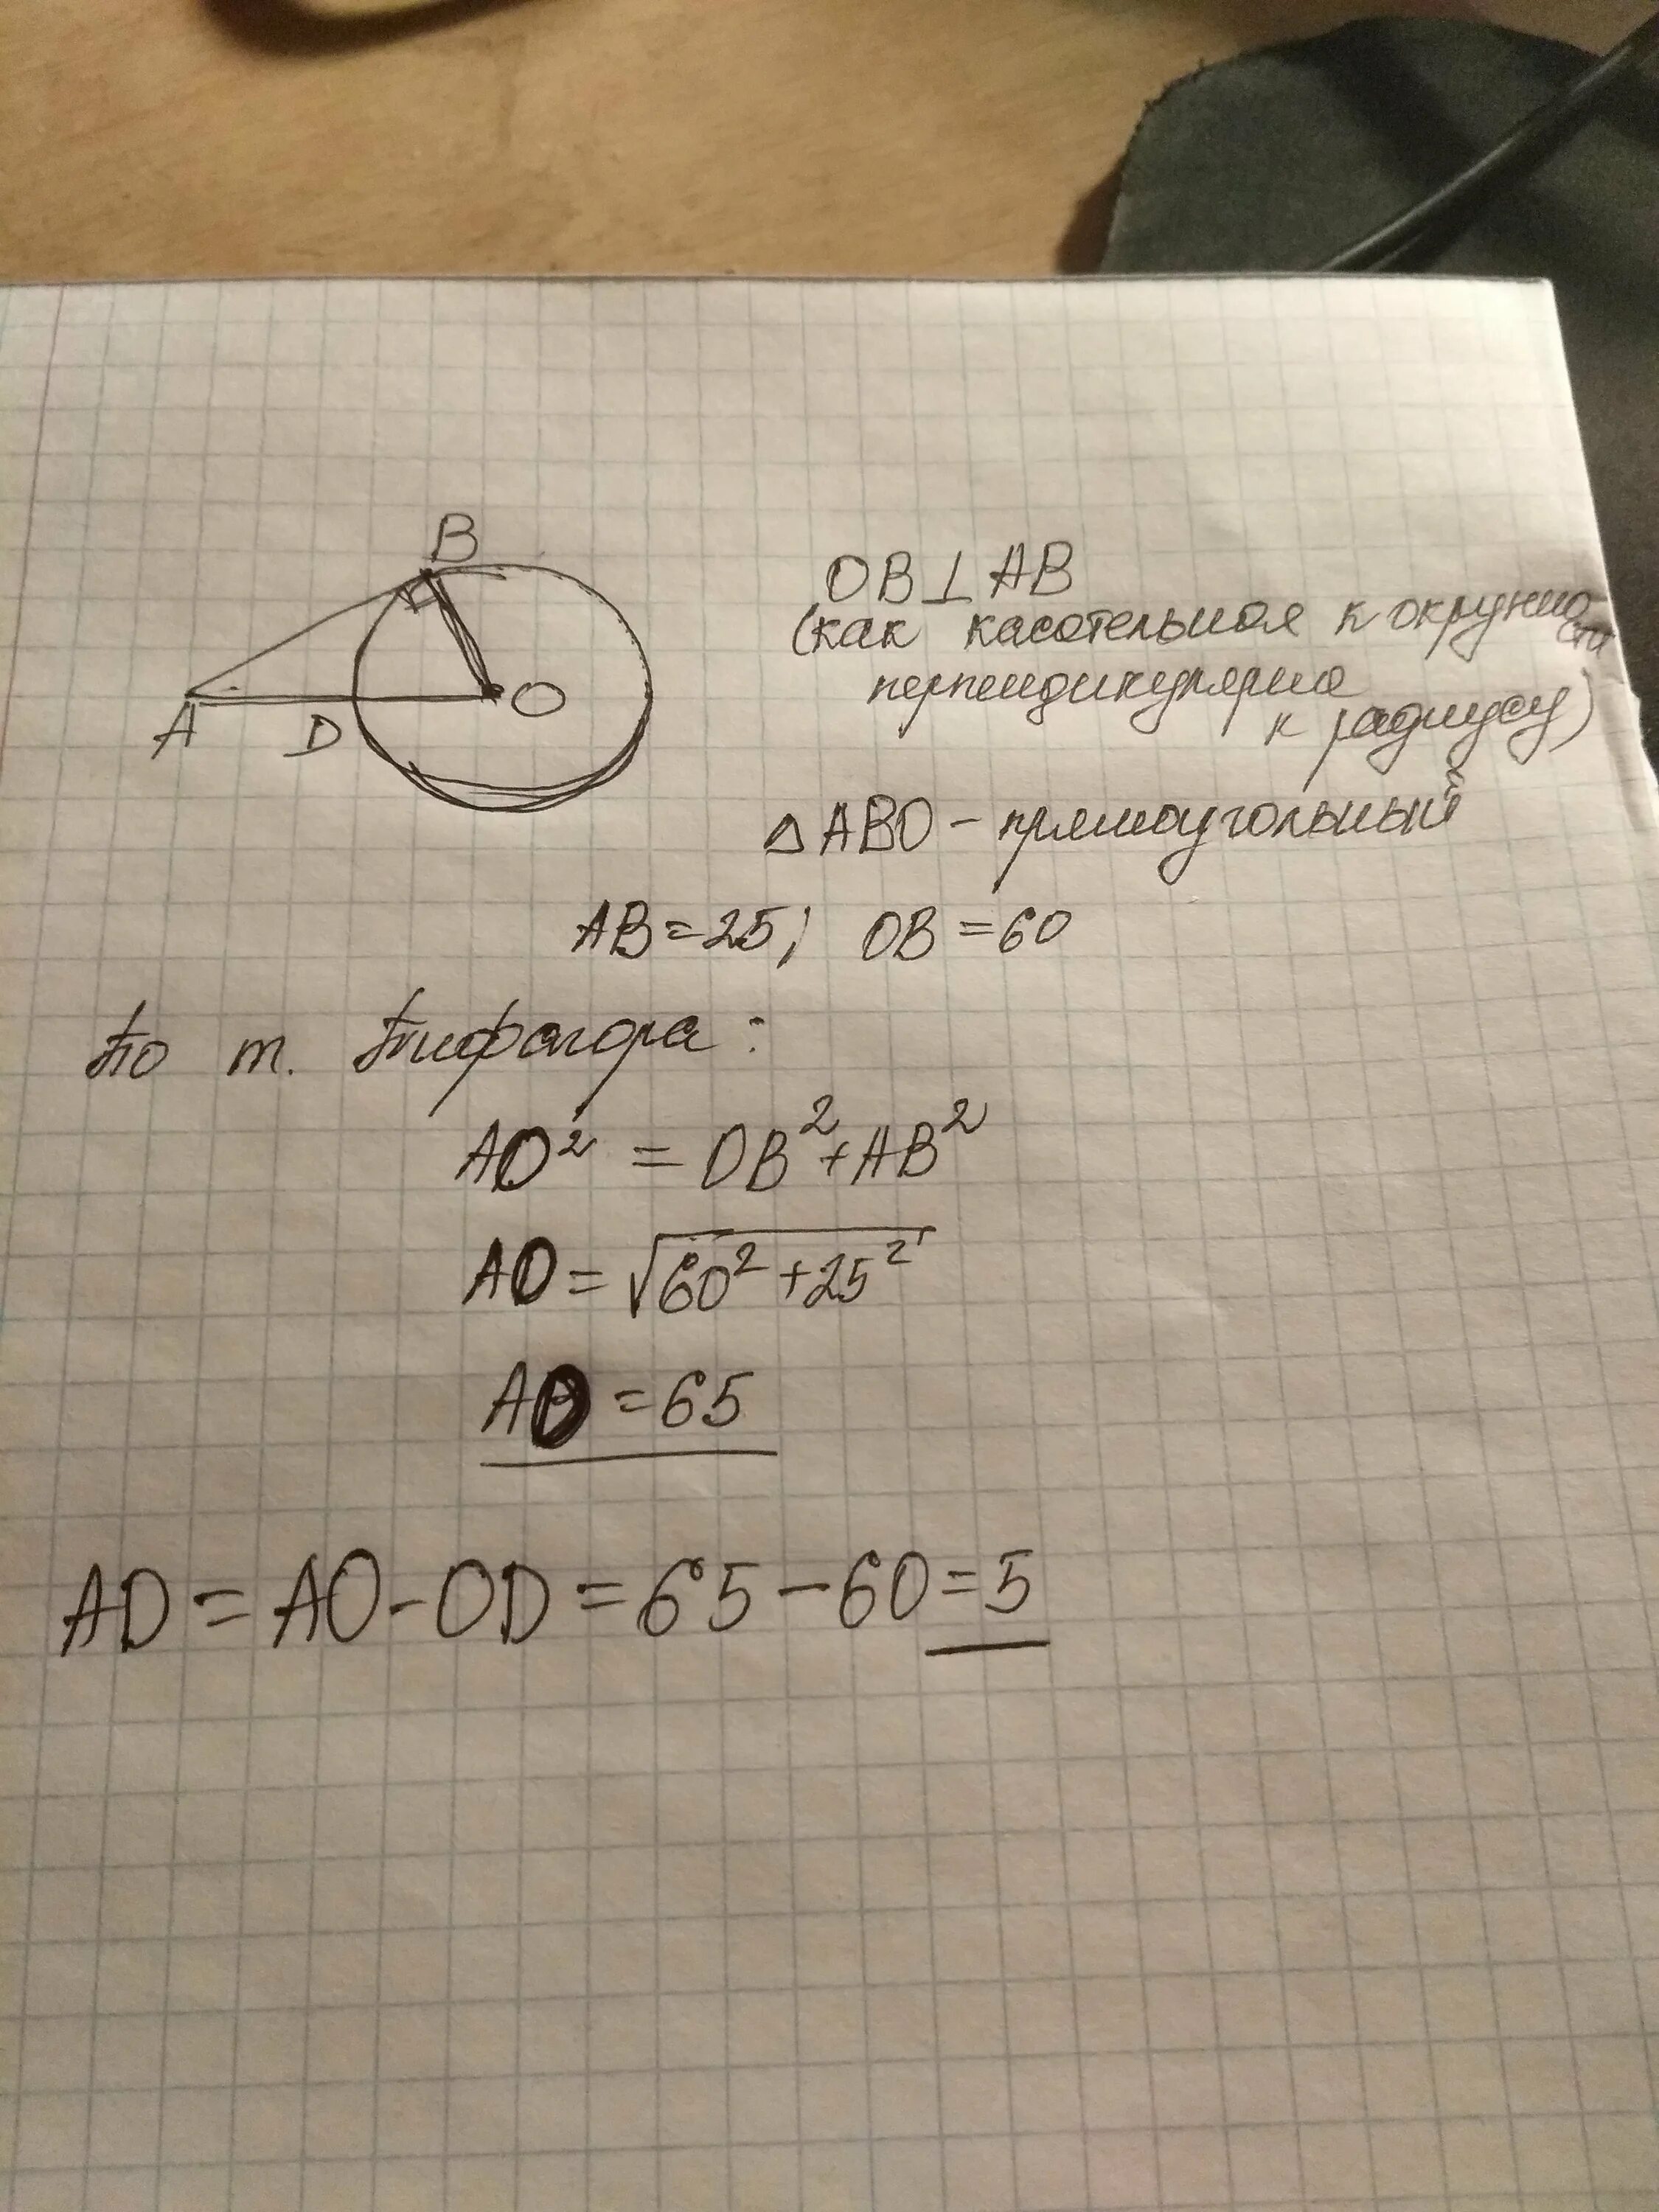 B
A
D
O
OB⊥AB
(как касательная к окружности
перпендикулярна
к радиусу)
△ABO - прямоугольный
AB=25; OB=60
По т. Пифагора:
AO² = OB²+AB²
AO=√60²+25²
AO=65
AD=AO-OD=65-60=5